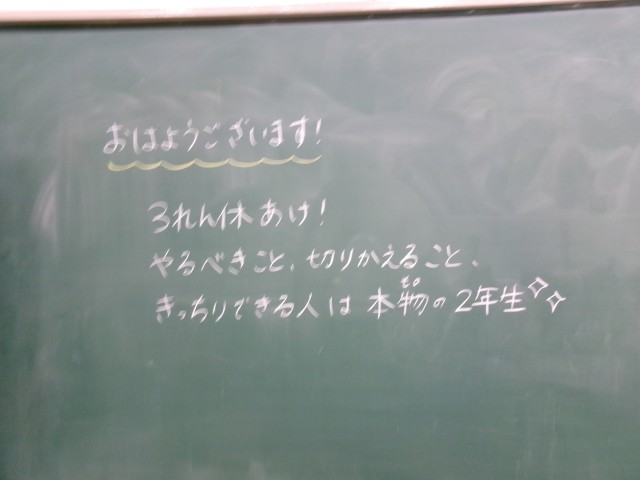 おはようございます！
3れん休あけ！
やるべきこと、切りかえること、
もの
きっちりできる人は本物の2年生